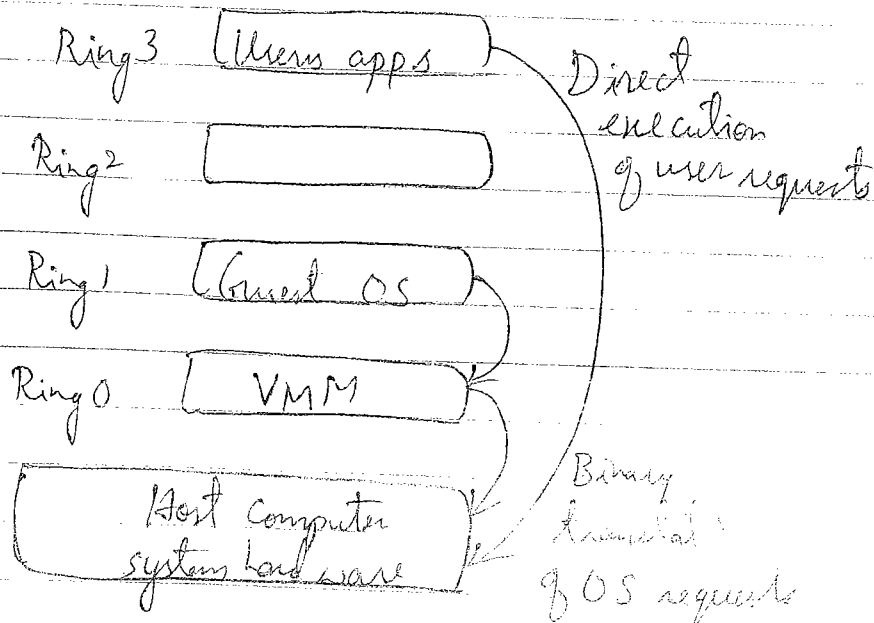 Ring 3 Users apps
Direct
execution
of user requests
Ring 2
Ring 1 Guest OS
Ring 0 VMM
Host Computer
system hardware
Binary
of OS requests